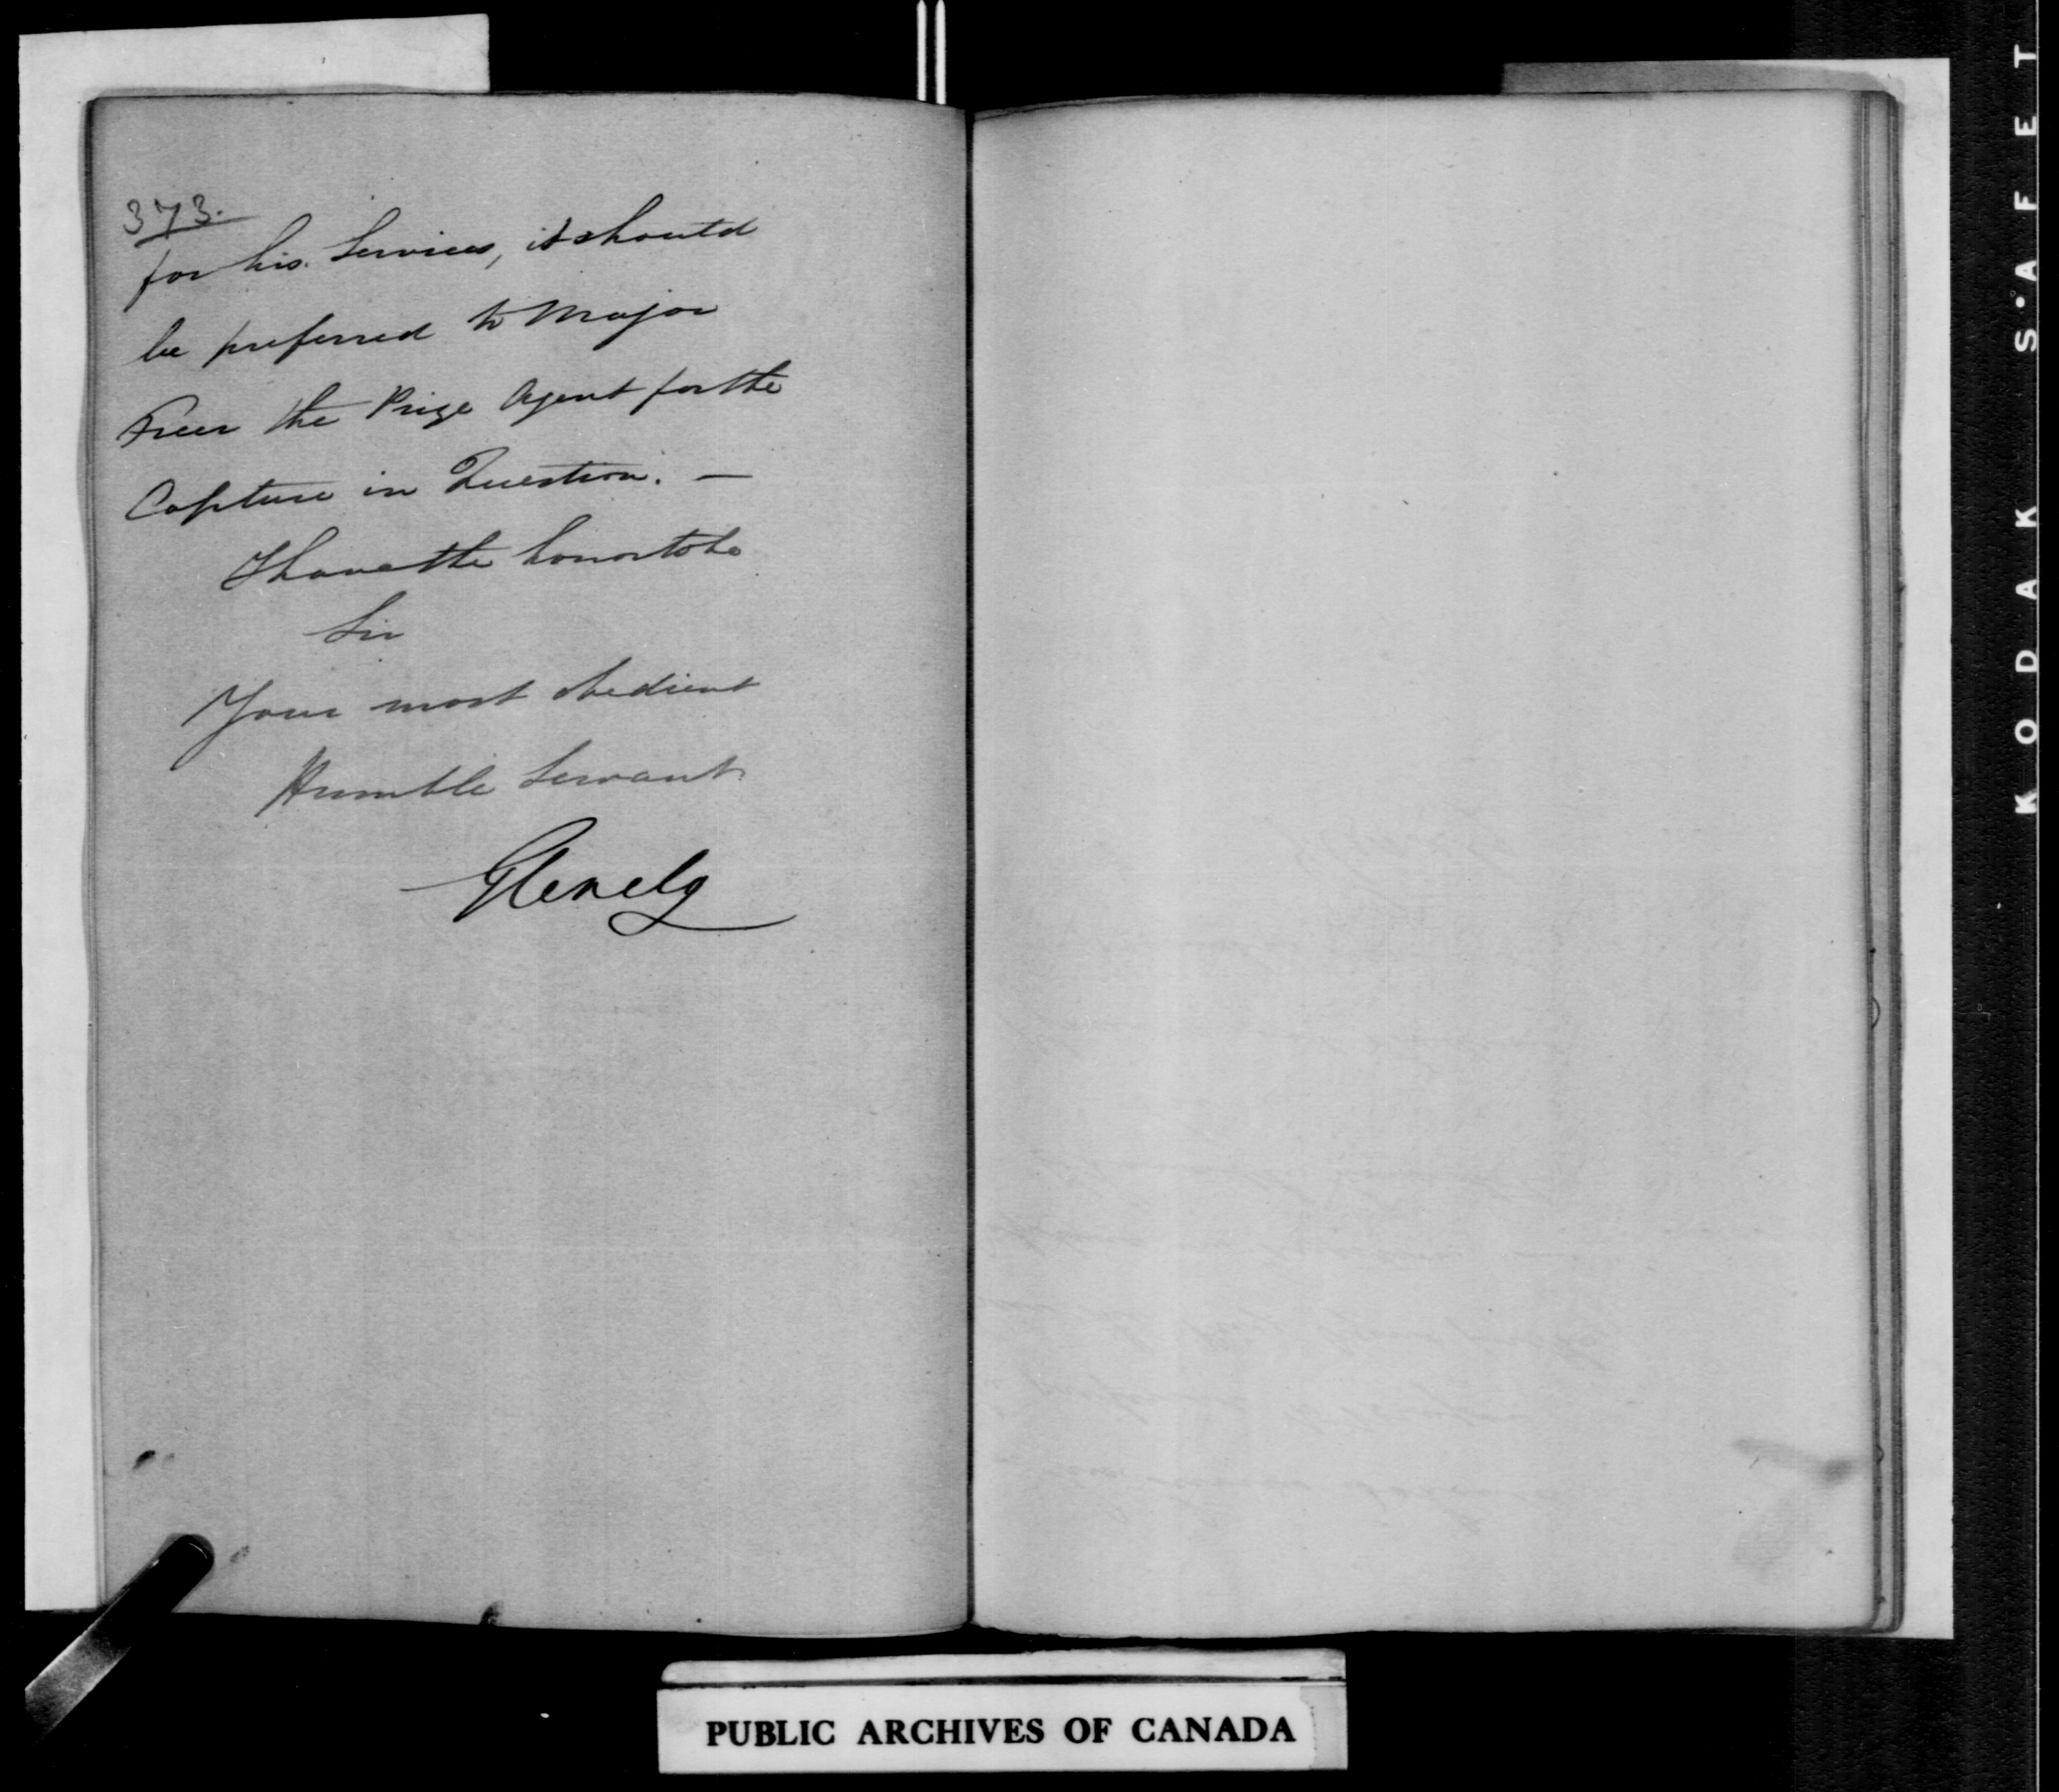 373.
for his Services, it should
be preferred to Major
Freer the Prize Agent for the
Capture in Question. —
I have the honor to be
Sir
Your most obedient
Humble Servant
Glenelg
PUBLIC ARCHIVES OF CANADA
KODAK S·AFET